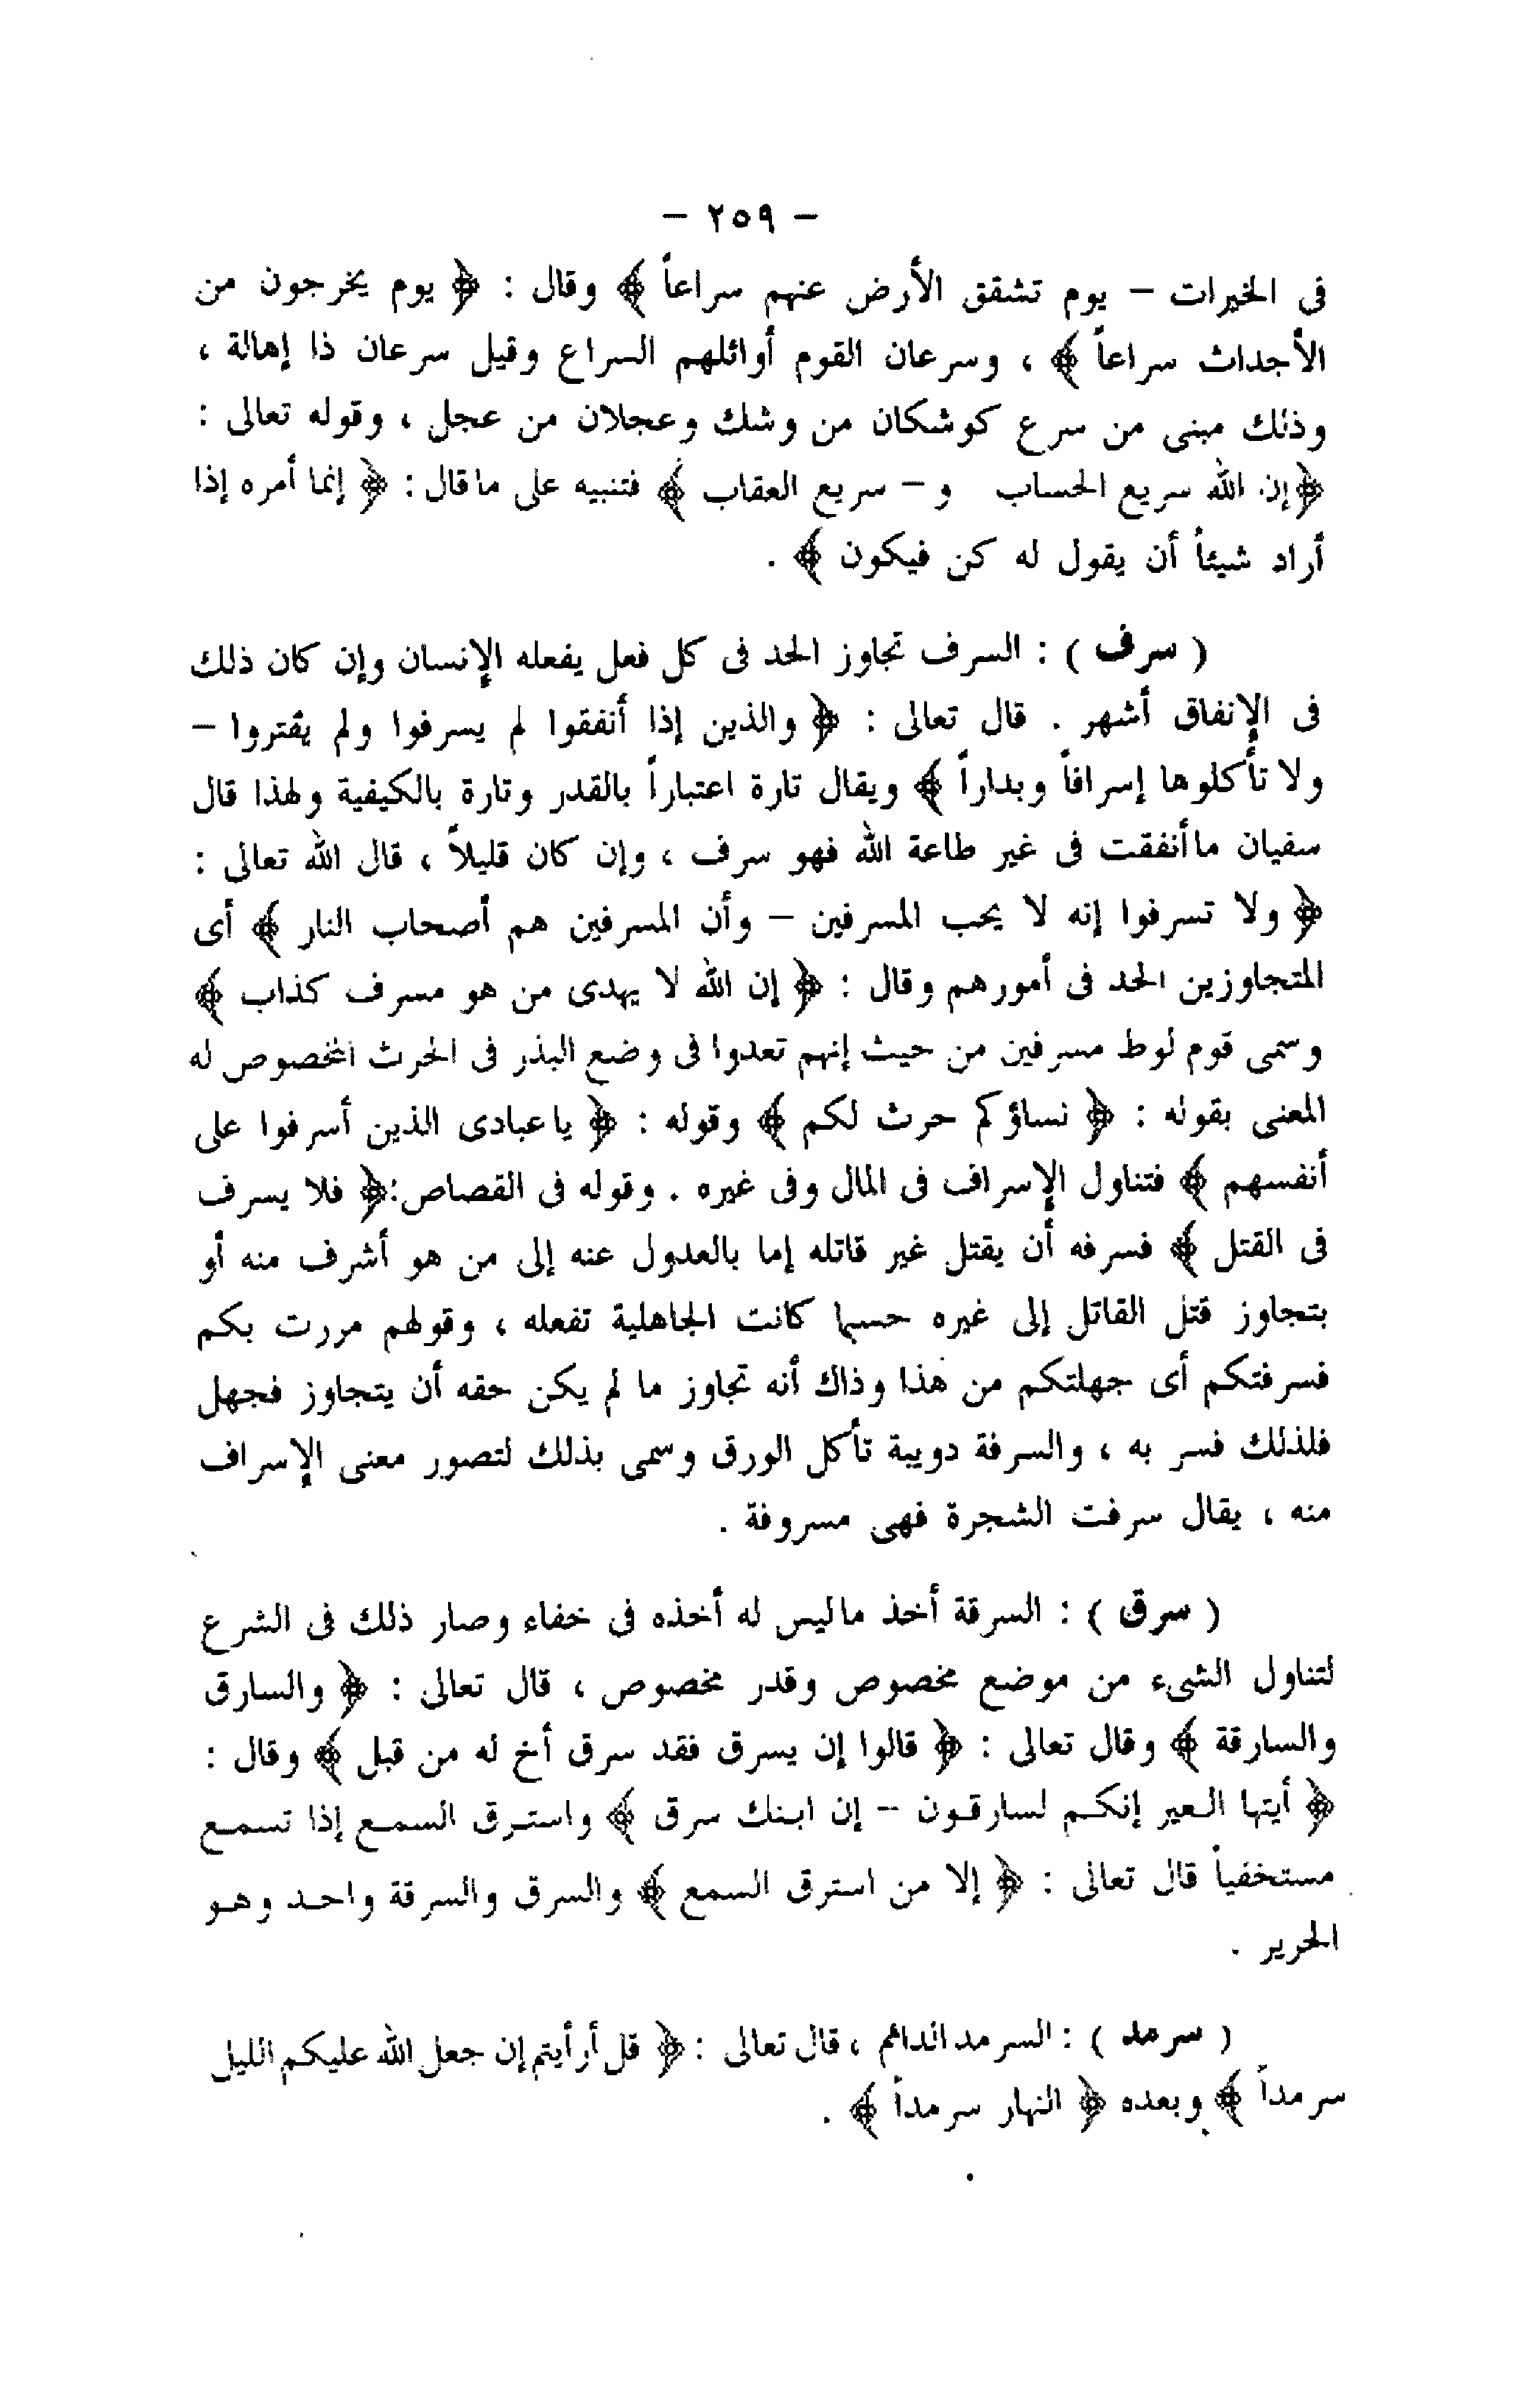 - ٢٥٩ -
فى الخيرات - يوم تشقق الأرض عنهم سراعاً ﴾ وقال : ﴿ يوم يخرجون من
الأجداث سراعاً ﴾ ، وسرعان القوم أوائلهم السراع وقيل سرعان ذا إهالة ،
وذلك مبنى من سرع كوشكان من وشك وعجلان من عجل ، وقوله تعالى :
﴿ إن الله سريع الحساب و - سريع العقاب ﴾ فتنبيه على ماقال : ﴿ إنما أمره إذا
أراد شيئاً أن يقول له كن فيكون ﴾ .
( سرف ) : السرف تجاوز الحد فى كل فعل يفعله الإنسان وإن كان ذلك
فى الإنفاق أشهر . قال تعالى : ﴿ والذين إذا أنفقوا لم يسرفوا ولم يقتروا -
ولا تأكلوها إسرافاً وبداراً ﴾ ويقال تارة اعتباراً بالقدر وتارة بالكيفية ولهذا قال
سفيان ماأنفقت فى غير طاعة الله فهو سرف ، وإن كان قليلاً ، قال الله تعالى :
﴿ ولا تسرفوا إنه لا يحب المسرفين - وأن المسرفين هم أصحاب النار ﴾ أى
المتجاوزين الحد فى أمورهم وقال : ﴿ إن الله لا يهدى من هو مسرف كذاب ﴾
وسمى قوم لوط مسرفين من حيث إنهم تعدوا فى وضع البذر فى الحرث المخصوص له
المعنى بقوله : ﴿ نساؤكم حرث لكم ﴾ وقوله : ﴿ ياعبادى الذين أسرفوا على
أنفسهم ﴾ فتناول الإسراف فى المال وفى غيره . وقوله فى القصاص : ﴿ فلا يسرف
فى القتل ﴾ فسرفه أن يقتل غير قاتله إما بالعدول عنه إلى من هو أشرف منه أو
بتجاوز قتل القاتل إلى غيره حسبما كانت الجاهلية تفعله ، وقولهم مررت بكم
فسرفتكم أى جهلتكم من هذا وذاك أنه تجاوز ما لم يكن حقه أن يتجاوز فجهل
فلذلك فسر به ، والسرفة دويبة تأكل الورق وسمى بذلك لتصور معنى الإسراف
منه ، يقال سرفت الشجرة فهى مسروفة .
( سرق ) : السرقة أخذ ماليس له أخذه فى خفاء وصار ذلك فى الشرع
لتناول الشىء من موضع مخصوص وقدر مخصوص ، قال تعالى : ﴿ والسارق
والسارقة ﴾ وقال تعالى : ﴿ قالوا إن يسرق فقد سرق أخ له من قبل ﴾ وقال :
﴿ أيتها العير إنكم لسارقون - إن ابنك سرق ﴾ واسترق السمع إذا تسمع
مستخفياً قال تعالى : ﴿ إلا من استرق السمع ﴾ والسرق والسرقة واحد وهو
الحرير .
( سرمد ) : السرمد الدائم ، قال تعالى : ﴿ قل أرأيتم إن جعل الله عليكم الليل
سرمداً ﴾ وبعده ﴿ النهار سرمداً ﴾ .